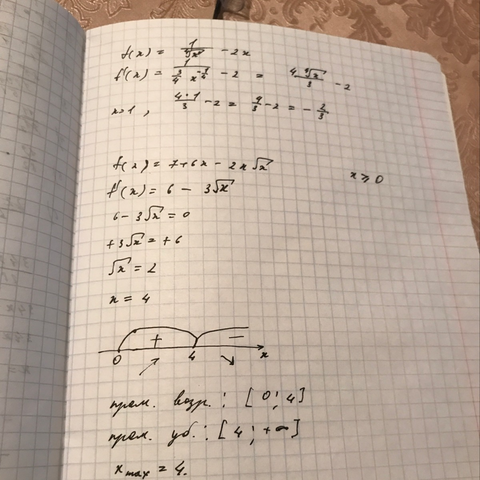 f(x) = 1/∜x³ - 2x
f'(x) = 1/(3/4 x^(-1/4)) - 2 = 4∜x/3 - 2
x=1, 4·1/3 - 2 = 4/3 - 2 = - 2/3
f(x) = 7+6x - 2x√x x ≥ 0
f'(x) = 6 - 3√x
6 - 3√x = 0
+3√x = +6
√x = 2
x = 4
+ -
0 ↗ 4 ↘ x
пром. возр.: [0; 4]
пром. уб.: [4; +∞]
x max = 4.